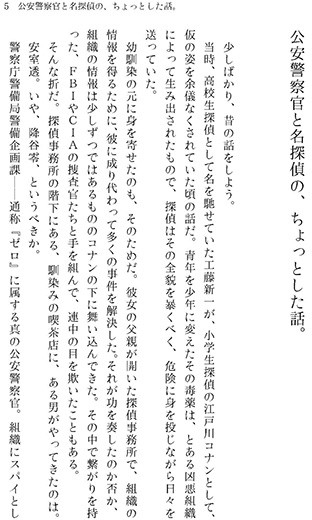 5　公安警察官と名探偵の、ちょっとした話。
公安警察官と名探偵の、ちょっとした話。
少しばかり、昔の話をしよう。
当時、高校生探偵として名を馳せていた工藤新一が、小学生探偵の江戸川コナンとして、
仮の姿を余儀なくされていた頃の話だ。青年を少年に変えたその毒薬は、とある凶悪組織
によって生み出されたもので、探偵はその全貌を暴くべく、危険に身を投じながら日々を
送っていた。
幼馴染の元に身を寄せたのも、そのためだ。彼女の父親が開いた探偵事務所で、組織の
情報を得るために、彼に成り代わって多くの事件を解決した。それが功を奏したのか否か、
組織の情報は少しずつではあるもののコナンの下に舞い込んできた。その中で繋がりを持
った、ＦＢＩやＣＩＡの捜査官たちと手を組んで、連中の目を欺いたこともある。
そんな折だ。探偵事務所の階下にある、馴染みの喫茶店に、ある男がやってきたのは。
安室透。いや、降谷零、というべきか。
警察庁警備局警備企画課――通称『ゼロ』に属する真の公安警察官。組織にスパイとし